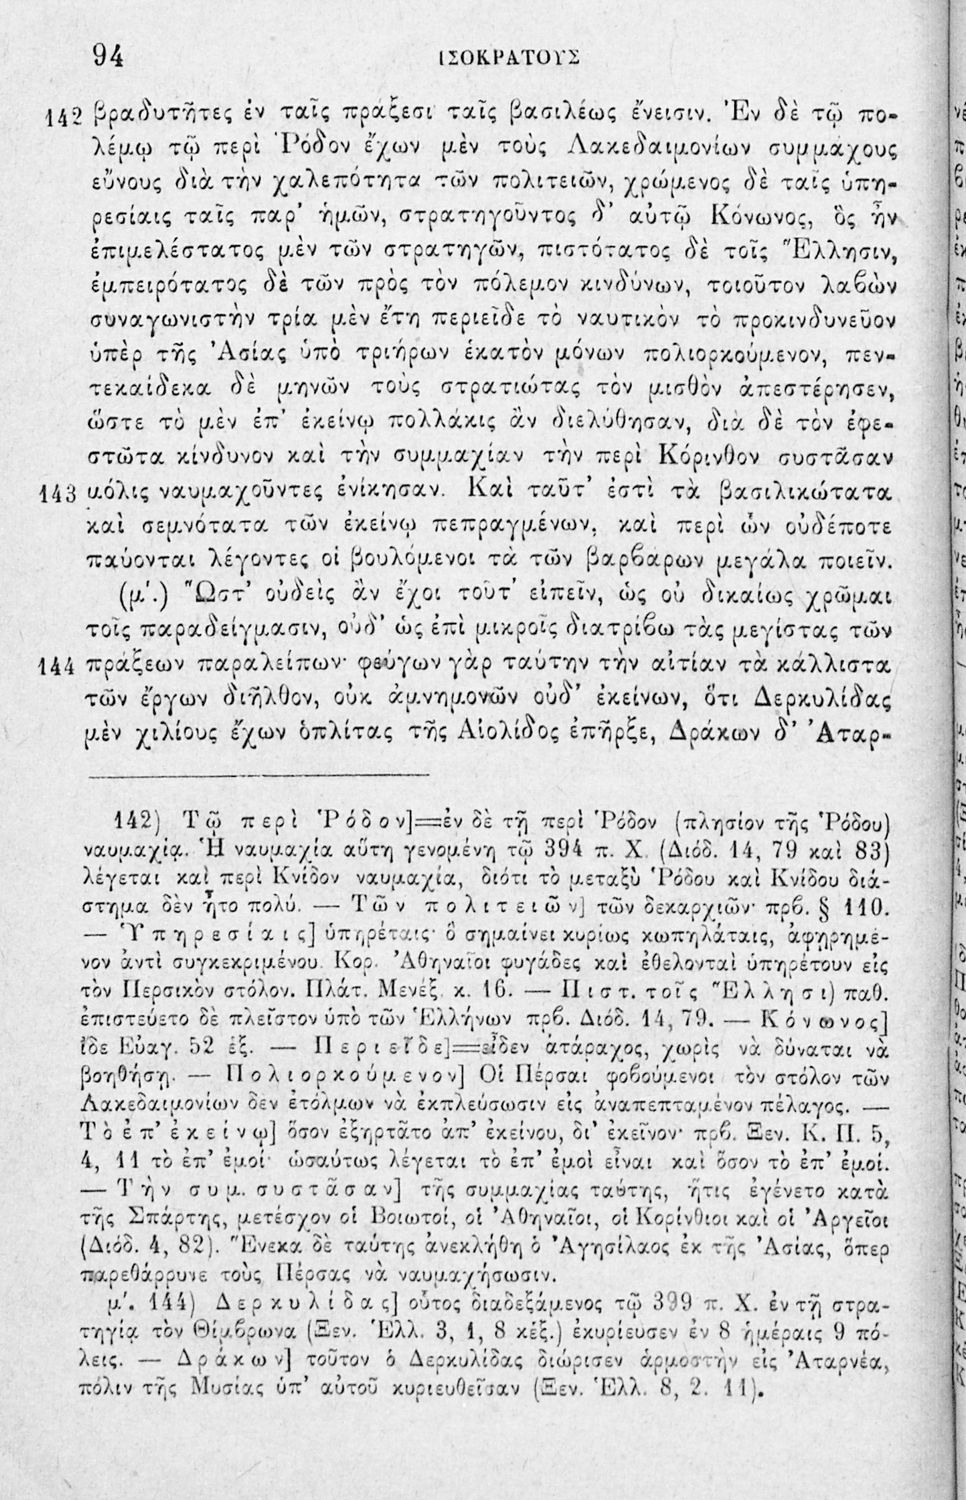 94 ΙΣΟΚΡΑΤΟΥΣ
142 βραδυτῆτες ἐν ταῖς πράξεσι ταῖς βασιλέως ἔνεισιν. Ἐν δὲ τῷ πο-
λέμῳ τῷ περὶ Ῥόδον ἔχων μὲν τοὺς Λακεδαιμονίων συμμάχους
εὔνους διὰ τὴν χαλεπότητα τῶν πολιτειῶν, χρώμενος δὲ ταῖς ὑπη-
ρεσίαις ταῖς παρ’ ἡμῶν, στρατηγοῦντος δ’ αὐτῷ Κόνωνος, ὃς ἦν
ἐπιμελέστατος μὲν τῶν στρατηγῶν, πιστότατος δὲ τοῖς Ἕλλησιν,
ἐμπειρότατος δὲ τῶν πρὸς τὸν πόλεμον κινδύνων, τοιοῦτον λαβὼν
συναγωνιστὴν τρία μὲν ἔτη περιεῖδε τὸ ναυτικὸν τὸ προκινδυνεῦον
ὑπὲρ τῆς Ἀσίας ὑπὸ τριήρων ἑκατὸν μόνων πολιορκούμενον, πεν-
τεκαίδεκα δὲ μηνῶν τοὺς στρατιώτας τὸν μισθὸν ἀπεστέρησεν,
ὥστε τὸ μὲν ἐπ’ ἐκείνῳ πολλάκις ἂν διελύθησαν, διὰ δὲ τὸν ἐφε-
στῶτα κίνδυνον καὶ τὴν συμμαχίαν τὴν περὶ Κόρινθον συστᾶσαν
143 μόλις ναυμαχοῦντες ἐνίκησαν. Καὶ ταῦτ’ ἐστὶ τὰ βασιλικώτατα
καὶ σεμνότατα τῶν ἐκείνῳ πεπραγμένων, καὶ περὶ ὧν οὐδέποτε
παύονται λέγοντες οἱ βουλόμενοι τὰ τῶν βαρβάρων μεγάλα ποιεῖν.
(μ΄.) Ὥστ’ οὐδεὶς ἂν ἔχοι τοῦτ’ εἰπεῖν, ὡς οὐ δικαίως χρῶμαι
τοῖς παραδείγμασιν, οὐδ’ ὡς ἐπὶ μικροῖς διατρίβω τὰς μεγίστας τῶν
144 πράξεων παραλείπων· φεύγων γὰρ ταύτην τὴν αἰτίαν τὰ κάλλιστα
τῶν ἔργων διῆλθον, οὐκ ἀμνημονῶν οὐδ’ ἐκείνων, ὅτι Δερκυλίδας
μὲν χιλίους ἔχων ὁπλίτας τῆς Αἰολίδος ἐπῆρξε, Δράκων δ’ Ἀταρ-
142) Τῷ περὶ Ῥόδον]=ἐν δὲ τῇ περὶ Ῥόδον (πλησίον τῆς Ῥόδου)
ναυμαχίᾳ. Ἡ ναυμαχία αὕτη γενομένη τῷ 394 π. Χ. (Διόδ. 14, 79 καὶ 83)
λέγεται καὶ περὶ Κνίδον ναυμαχία, διότι τὸ μεταξὺ Ῥόδου καὶ Κνίδου διά-
στημα δὲν ἦτο πολύ. — Τῶν πολιτειῶν] τῶν δεκαρχιῶν· πρβ. § 110.
— Ὑπηρεσίαις] ὑπηρέταις· ὃ σημαίνει κυρίως κωπηλάταις, ἀφῃρημέ-
νον ἀντὶ συγκεκριμένου. Κορ. Ἀθηναῖοι φυγάδες καὶ ἐθελονταὶ ὑπηρέτουν εἰς
τὸν Περσικὸν στόλον. Πλάτ. Μενέξ. κ. 16. — Πιστ. τοῖς Ἕλλησι) παθ.
ἐπιστεύετο δὲ πλεῖστον ὑπὸ τῶν Ἑλλήνων πρβ. Διόδ. 14, 79. — Κόνωνος]
ἴδε Εὐαγ. 52 ἑξ. — Περιεῖδε]=εἶδεν ἀτάραχος, χωρὶς νὰ δύναται νὰ
βοηθήσῃ. — Πολιορκούμενον] Οἱ Πέρσαι φοβούμενοι τὸν στόλον τῶν
Λακεδαιμονίων δὲν ἐτόλμων νὰ ἐκπλεύσωσιν εἰς ἀναπεπταμένον πέλαγος. —
Τὸ ἐπ’ ἐκείνῳ] ὅσον ἐξηρτᾶτο ἀπ’ ἐκείνου, δι’ ἐκεῖνον· πρβ. Ξεν. Κ. Π. 5,
4, 11 τὸ ἐπ’ ἐμοί· ὡσαύτως λέγεται τὸ ἐπ’ ἐμοὶ εἶναι καὶ ὅσον τὸ ἐπ’ ἐμοί.
— Τὴν συμ. συστᾶσαν] τῆς συμμαχίας ταύτης, ἥτις ἐγένετο κατὰ
τῆς Σπάρτης, μετέσχον οἱ Βοιωτοί, οἱ Ἀθηναῖοι, οἱ Κορίνθιοι καὶ οἱ Ἀργεῖοι
(Διόδ. 4, 82). Ἕνεκα δὲ ταύτης ἀνεκλήθη ὁ Ἀγησίλαος ἐκ τῆς Ἀσίας, ὅπερ
παρεθάρρυνε τοὺς Πέρσας νὰ ναυμαχήσωσιν.
μ΄. 144) Δερκυλίδας] οὗτος διαδεξάμενος τῷ 399 π. Χ. ἐν τῇ στρα-
τηγίᾳ τὸν Θίμβρωνα (Ξεν. Ἑλλ. 3, 1, 8 κἑξ.) ἐκυρίευσεν ἐν 8 ἡμέραις 9 πό-
λεις. — Δράκων] τοῦτον ὁ Δερκυλίδας διώρισεν ἁρμοστὴν εἰς Ἀταρνέα,
πόλιν τῆς Μυσίας ὑπ’ αὐτοῦ κυριευθεῖσαν (Ξεν. Ἑλλ. 8, 2. 11).